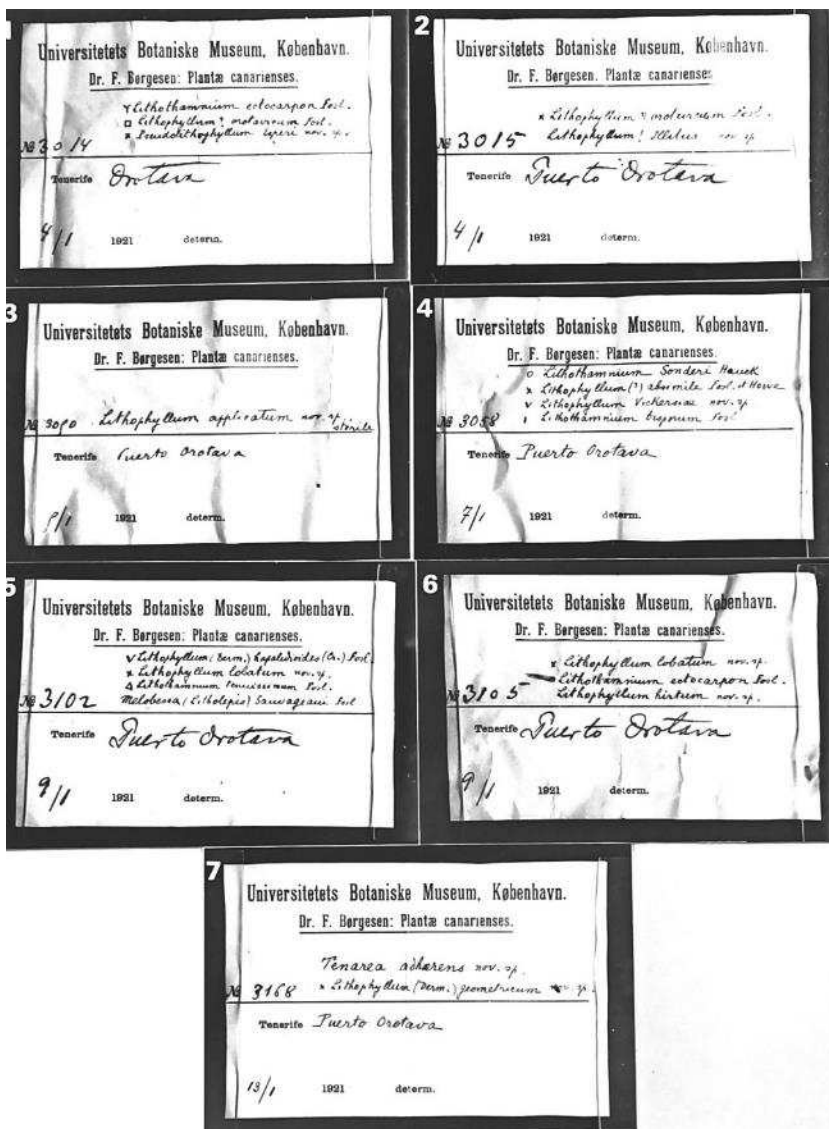 1
Universitetets Botaniske Museum, København.
Dr. F. Børgesen: Plantæ canarienses.
Lithothamnium ectocarpon Fosl.
□ Lithophyllum ? orotavicum Fosl.
x Pseudolithophyllum Esperi nov. sp.
№ 3014
Tenerife Orotava
4/1 1921 determ.
2
Universitetets Botaniske Museum, København.
Dr. F. Børgesen. Plantæ canarienses.
x Lithophyllum Fosl.
Lithophyllum ! Illitus nov. sp
№ 3015
Tenerife Puerto Orotava
4/1 1921 determ.
3
Universitetets Botaniske Museum, København.
Dr. F. Børgesen: Plantæ canarienses.
№ 3090 Lithophyllum applicatum nov. sp.
sterile
Tenerife Puerto Orotava
/1 1921 determ.
4
Universitetets Botaniske Museum, København.
Dr. F. Børgesen: Plantæ canarienses.
o Lithothamnium Sonderi Hauck
x Lithophyllum (?) absimile Fosl. et Howe
v Lithophyllum Vickersiae nov. sp
Lithothamnium Fosl
№ 3058
Tenerife Puerto Orotava
7/1 1921 determ.
5
Universitetets Botaniske Museum, København.
Dr. F. Børgesen: Plantæ canarienses.
v Lithophyllum (Derm.) hapalidioides (Cr.) Fosl.
x Lithophyllum lobatum nov. sp.
Δ Lithothamnium tenuissimum Fosl.
№ 3102 Melobesia (Litholepis) Sauvageaui Fosl
Tenerife Puerto Orotava
9/1 1921 determ.
6
Universitetets Botaniske Museum, København.
Dr. F. Børgesen: Plantæ canarienses.
x Lithophyllum lobatum nov. sp.
Lithothamnium ectocarpon Fosl.
№ 3105 Lithophyllum hirtum nov. sp.
Tenerife Puerto Orotava
9/1 1921 determ.
7
Universitetets Botaniske Museum, København.
Dr. F. Børgesen: Plantæ canarienses.
Tenarea adhærens nov. sp.
№ 3168 x Lithophyllum (Derm.) geometricum nov. sp.
Tenerife Puerto Orotava
13/1 1921 determ.